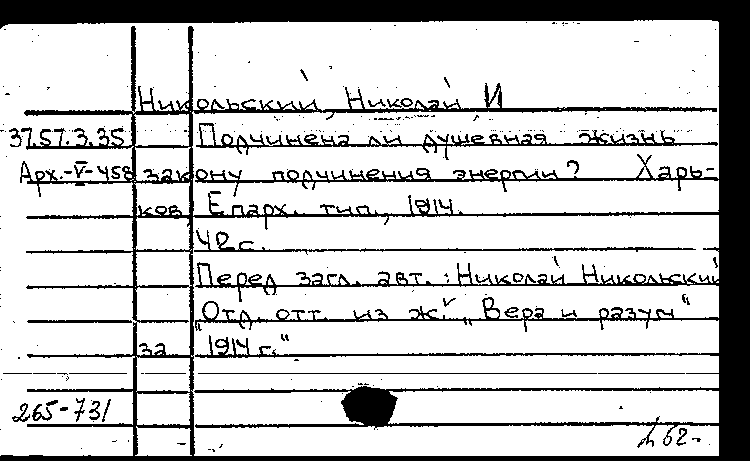 Никольский, Николай И
37.57.3.35 Подчинена ли душевная жизнь
Арх.-V-458 закону подчинения энергии? Харь-
ков, Епарх. тип., 1914.
42 с.
Перед загл. авт.: Николай Никольский
„Отд. отт. из ж. „Вера и разум"
за 1914 г."
265-731
62-